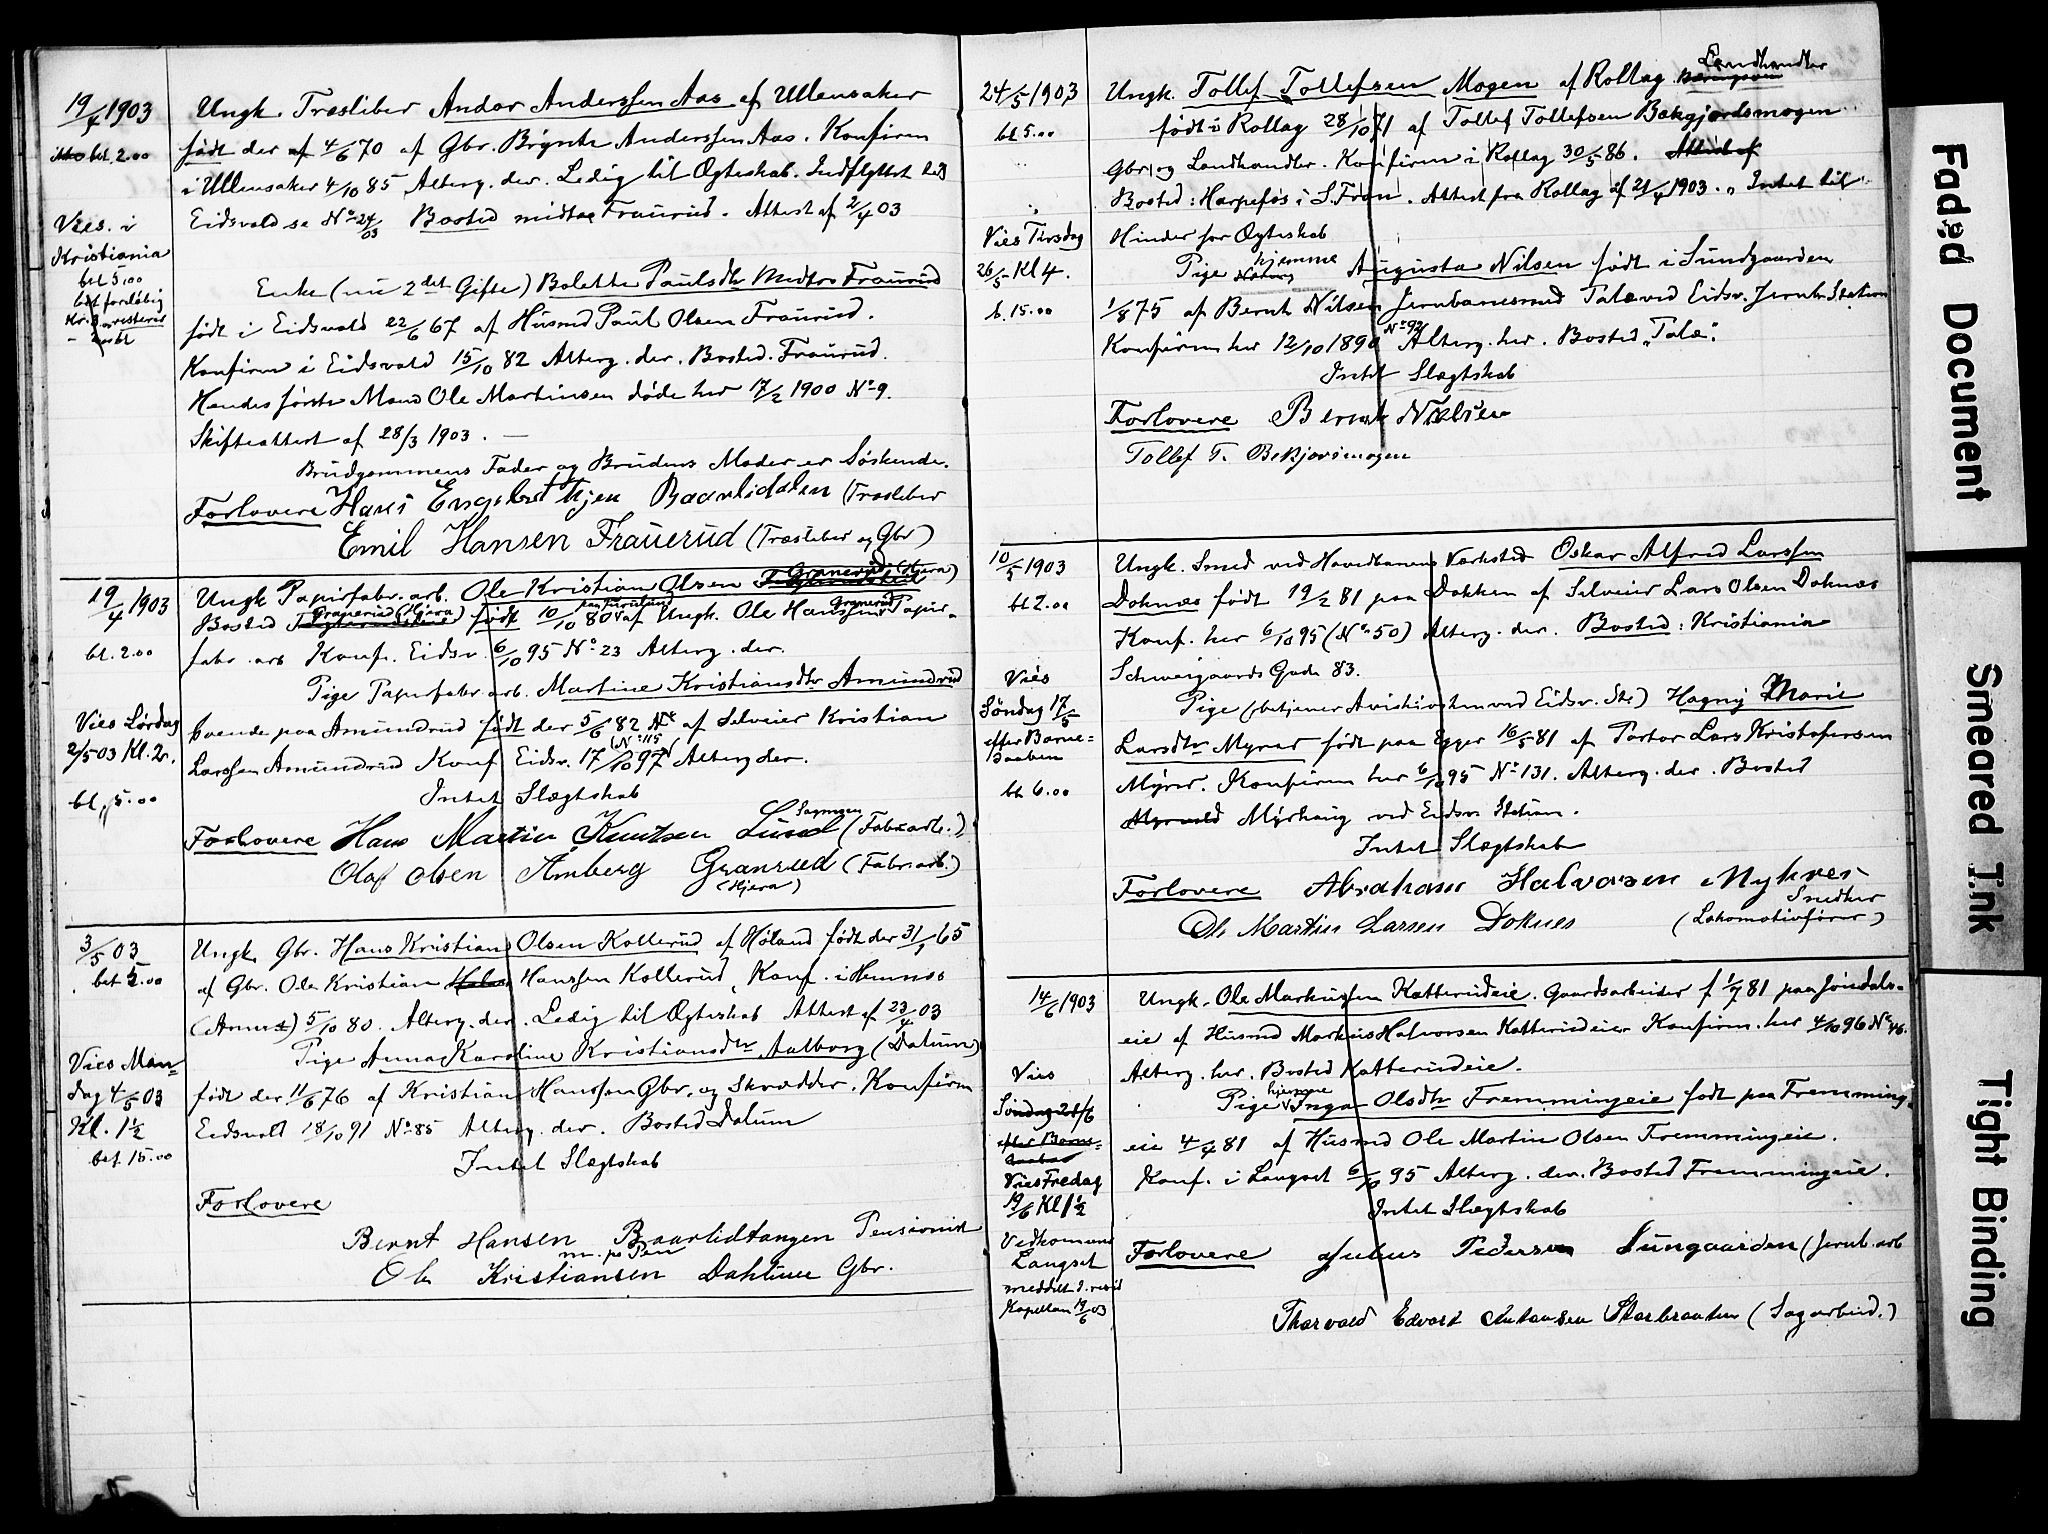 19/4 1903
bet 2.00
Ungk. Træsliber Andor Anderssen Aas af Ullensaker
født der af 4/6 70 af Gbr. Brynte Anderssen Aas. Konfirm
i Ullensaker 4/10 85 Alterg. der. Ledig til Ægteskab. Indflyttet til
Eidsvold se No 24/03 Bosted midtre Fraurud. Attest af 2/4 03
Vies i
Kristiania
bet 5.00
bet foreløbig
Kr. 3 resterer
Enke (nu 2det Gifte) Bolette Paulsdtr Midtre Fraurud
født i Eidsvold 22/6 67 af Husmd Paul Olsen Fraurud.
Konfirm i Eidsvold 15/10 82 Alterg. der. Bosted. Fraurud.
Hendes første Mand Ole Martinsen døde her 17/2 1900 No 9.
Skifteattest af 28/3 1903. —
Brudgommens Fader og Brudens Moder er Søskende.
Forlovere Hans Engebrethsen Baarlidalen (Træsliber
Emil Hansen Frauerud (Træsliber og Gbr)
19/4 1903
bet. 2.00
Ungk Papirfabr. arb. Ole Kristian Olsen Granerud (Hjera)
Bosted Granerud (Hjera) født 10/10 80 af Ungk. Ole Hanssen Granerud Papir-
fabr. arb Konf. Eidsv. 6/10 95 No 23 Alterg. der.
Pige Papirfabr. arb. Martine Kristiansdtr Amundrud
boende paa Amundrud født der 5/6 82 af Selveier Kristian
Larssen Amundrud Konf Eidsv. 17/10 97 (No 115) Alterg der.
Intet Slægtskab
Vies Lørdag
2/5 03 Kl. 2.
bet, 5.00
Forlovere Hans Martin Knutsen Lund Sagmoen (Fabrarb.)
Olaf Olsen Amberg Granrud (Fabr. arb.)
(Hjera)
3/5 03
bet 5.00
Ungk. Gbr. Hans Kristian Olsen Kollerud af Høland født der 31/1 65
af Gbr. Ole Kristian Hanssen Kollerud, Konf. i Hemnes
5/10 80. Alterg. der. Ledig til Ægteskab Attest af 23/4 03
Pige Anna Karoline Kristiansdtr Aalborg (Dalum)
født der 11/6 76 af Kristian Hanssen Gbr. og Skrædder. Konfirm
Eidsvold 18/10 91 No 85 Alterg. der. Bosted Dalum
Intet Slægtskab
Vies Man-
dag 4/5 03
Kl. 1½
bet. 15.00
Forlovere
Bernt Hansen Baarlidtangen Pensionist
m. p. Pen
Ole Kristiansen Dahlum Gbr.
24/5 1903
bet 5.00
Ungk. Tollef Tollefsen Mogen af Rollag Landhandler
født i Rollag 28/10 71 af Tollef Tollefsen Bekgjordsmogen
Gbr. og Landhandler. Konfirm i Rollag 30/5 86. Attest af
Bosted: Harpefos i S. Fron. Attest fra Rollag af 21/4 1903. „Intet til
Hinder for Ægteskab
Vies Tirsdag
26/5 Kl 4.
b. 15.00
Pige hjemme Augusta Nilsen født i Sundgaarden
1/8 75 af Bernt Nilsen Jernbanemd Tale ved Eidsv. Jernb. Station
Konfirm her 12/10 1890 No 92 Alterg. her. Bosted „Tale".
Intet Slægtskab
Forlovere Bernt Nielsen
Tollef T. Bekjorsmogen
10/5 1903
bet 2.00
Ungk. Smed ved Hovedbanens Værksted Oskar Alfred Larssen
Doknæs født 19/2 81 paa Dokken af Selveier Lars Olsen Doknæs
Konf. her 6/10 95 (No 50) Alterg. der. Bosted: Kristiania
Schweigaards Gade 83.
Pige (betjener Aviskiosken ved Eidsv. St.) Hagny Marie
Larsdtr Myrer født paa Egger 16/5 81 af Portør Lars Kristofersen
Myrer. Konfirm her 6/10 95 No 131. Alterg. der. Bosted
Myrhaug ved Eidsv. Station.
Intet Slægtskab
Vies
Søndag 17/5
efter Barne-
Daaben
bet 6.00
Forlovere Abraham Halvorsen Myhrer
Snedker
Ole Martin Larsen Doknes (Lokomotivfører)
14/6 1903
Ungk. Ole Markussen Katterudeie. Gaardsarbeider f 1/7 81 paa Jøndals-
eie af Husmd Markus Halvorsen Katterudeie Konfirm. her 4/10 96 No 46.
Alterg. her. Bosted Katterudeie.
Pige hjemme Inga Olsdtr Fremmingeie født paa Fremming-
eie 4/4 81 af Husmd Ole Martin Olsen Fremmingeie.
Konf. i Langset 6/10 95 Alterg. der. Bosted Fremmingeie.
Intet Slægtskab
Vies
Søndag 21/6
efter Barne-
daaben
Vies Fredag
19/6 Kl 1½
Vedkomme
Langset
meddelt d. resid
Kapellan 19/6 03
Forlovere Julius Pedersen Sungaarden (Jernb. arb
Thorvald Edvart Antonsen Storbraaten (Sagarbeid.)
Faded Document
Smeared Ink
Tight Binding